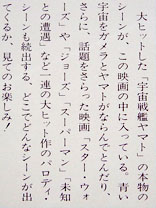 大ヒットした「宇宙戦艦ヤマト」の本物の
シーンが、この映画の中に入っている。青い
宇宙をガメラとヤマトがならんでとんだり、
さらに、話題をさらった映画「スター・ウォ
ーズ」や「ジョーズ」「スーパーマン」「未知
との遭遇」など一連の大ヒット作のパロディ・
シーンも続出する。どこでどんなシーンが出
てくるか、見てのお楽しみ!